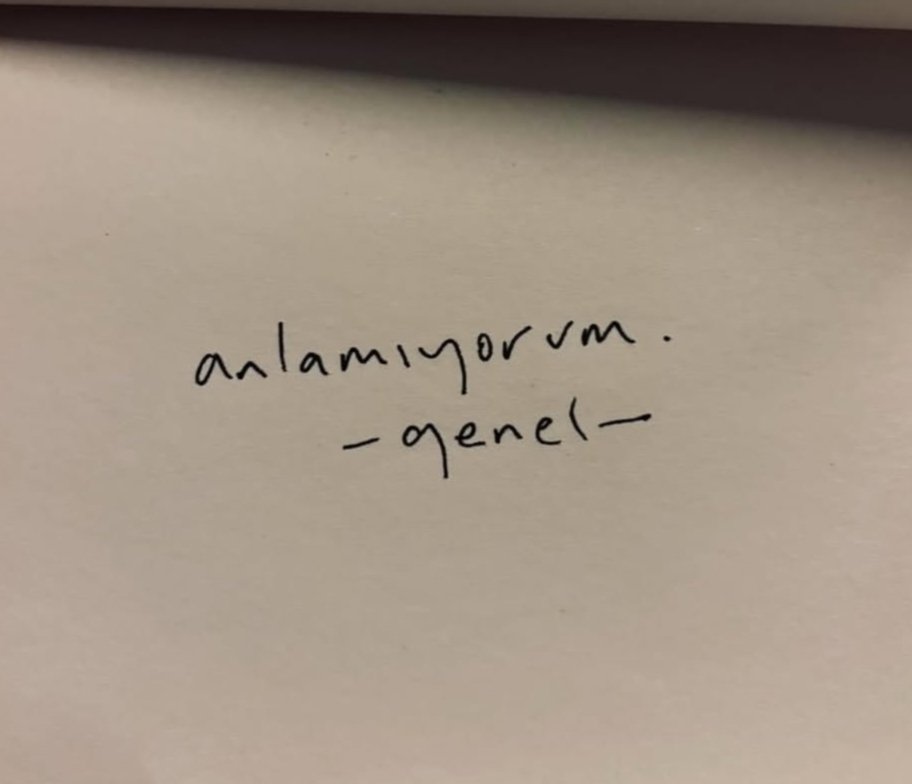 anlamıyorum.
-genel-